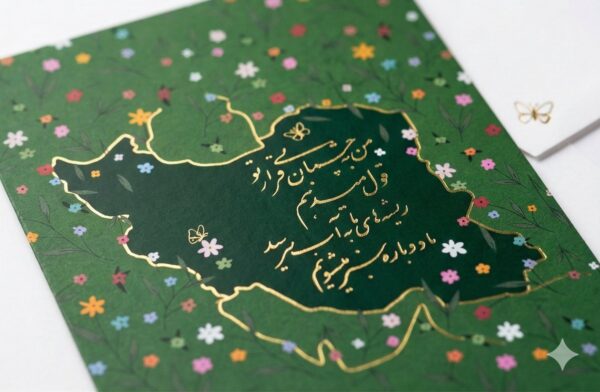 من به چشمان بی قرار تو
قول میدهم
ریشه های ما به آب می رسد
ما دوباره سبز میشویم